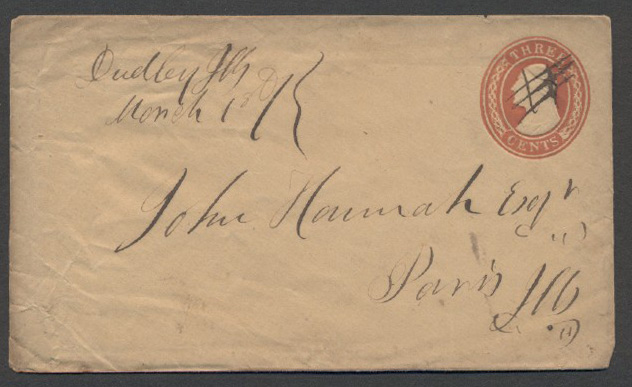 Dudley Ills
March 1st
THREE
CENTS
John Hannah Esqr
Paris Ills